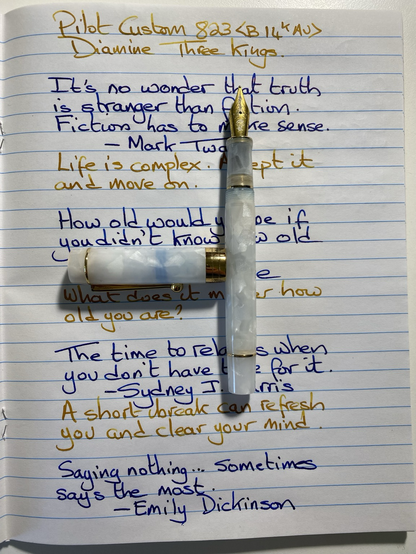 Pilot Custom 823 <B 14K AU>
Diamine Three Kings.
It's no wonder that truth
is stranger than fiction.
Fiction has to make sense.
- Mark
Life is complex. Accept it
and move on.
How old would you be if
you didn't know how old
What does it matter how
old you are?
The time to relax is when
you don't have time for it.
- Sydney J. Harris
A short break can refresh
you and clear your mind.
Saying nothing... sometimes
says the most.
- Emily Dickinson